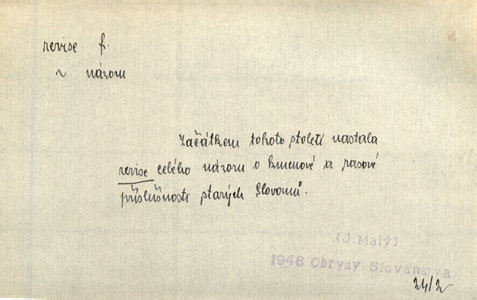 revise f.
~ názoru
Začátkem tohoto století nastala
revise celého názoru o kmenové a rasové
příslušnosti starých Slovanů.
(J.Malý)
1948 Obrysy Slovanstva
24/2